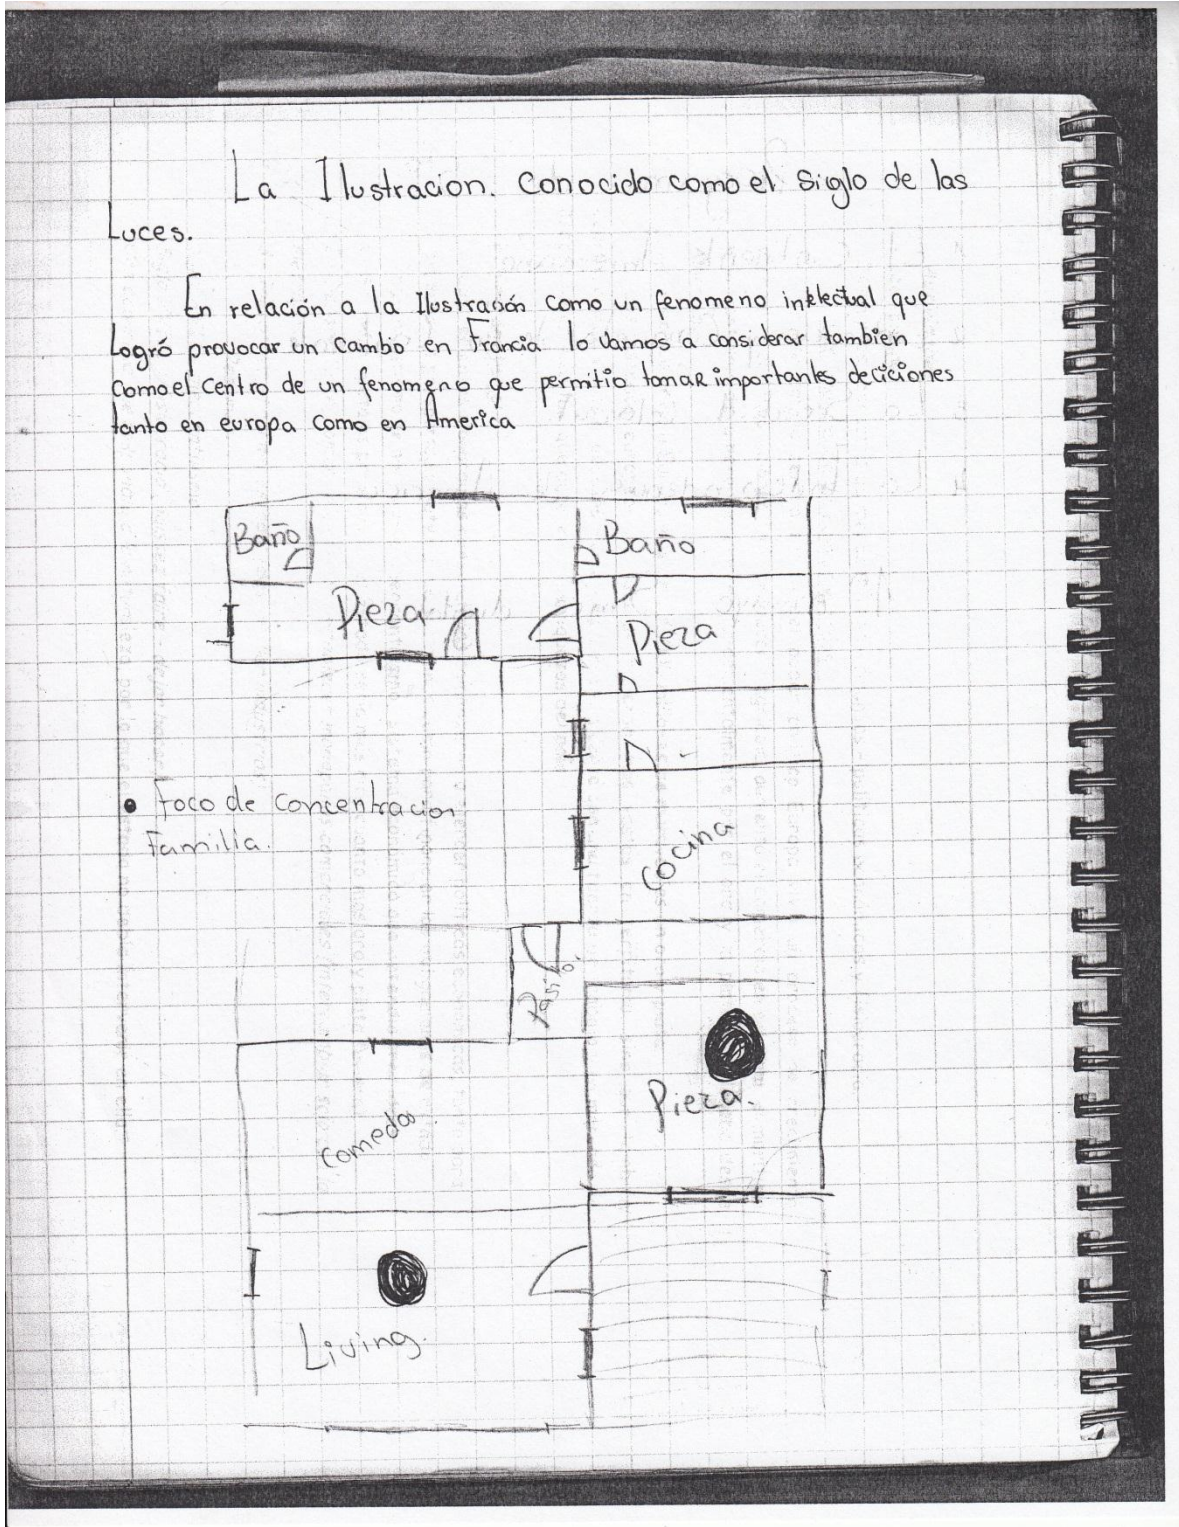 La Ilustracion. Conocido como el Siglo de las
Luces.
En relación a la Ilustración como un fenomeno intelectual que
Logró provocar un Cambio en Francia lo Vamos a considerar tambien
Como el Centro de un fenomeno que permitio tomar importantes deciciones
tanto en europa como en America
Baño
Baño
Pieza
Pieza
• Foco de Concentracion
Familia.
Cocina
Pasillo.
Pieza.
Comedor.
Living.